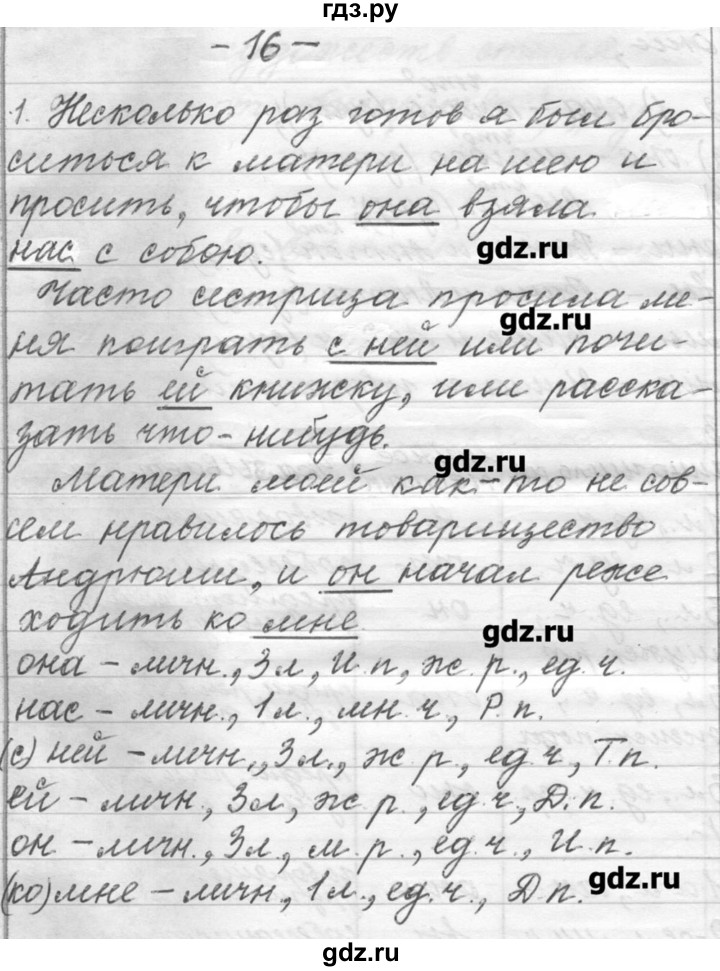 гдз.ру
- 16 -
1. Несколько раз готов я был бро-
ситься к матери на шею и
просить, чтобы она взяла
нас с собою.
gdz.ru
Часто сестрица просила ме-
gdz.ru
ня поиграть с ней или почи-
тать ей книжку, или расска-
зать что-нибудь.
gdz.ru
Матери моей как-то не сов-
сем нравилось товарищество
Андрюши, и он начал реже
ходить ко мне
gdz.ru
она - личн., 3 л, И.п, ж.р., ед.ч.
нас - личн., 1 л., мн.ч, Р.п.
(с) ней - личн., 3 л., ж.р., ед.ч, Т.п.
ей - личн., 3 л, ж.р., ед.ч, Д.п.
он - личн., 3 л, м.р., ед.ч., И.п.
(ко) мне - личн., 1 л., ед.ч., Д.п.
gdz.ru
gdz.ru